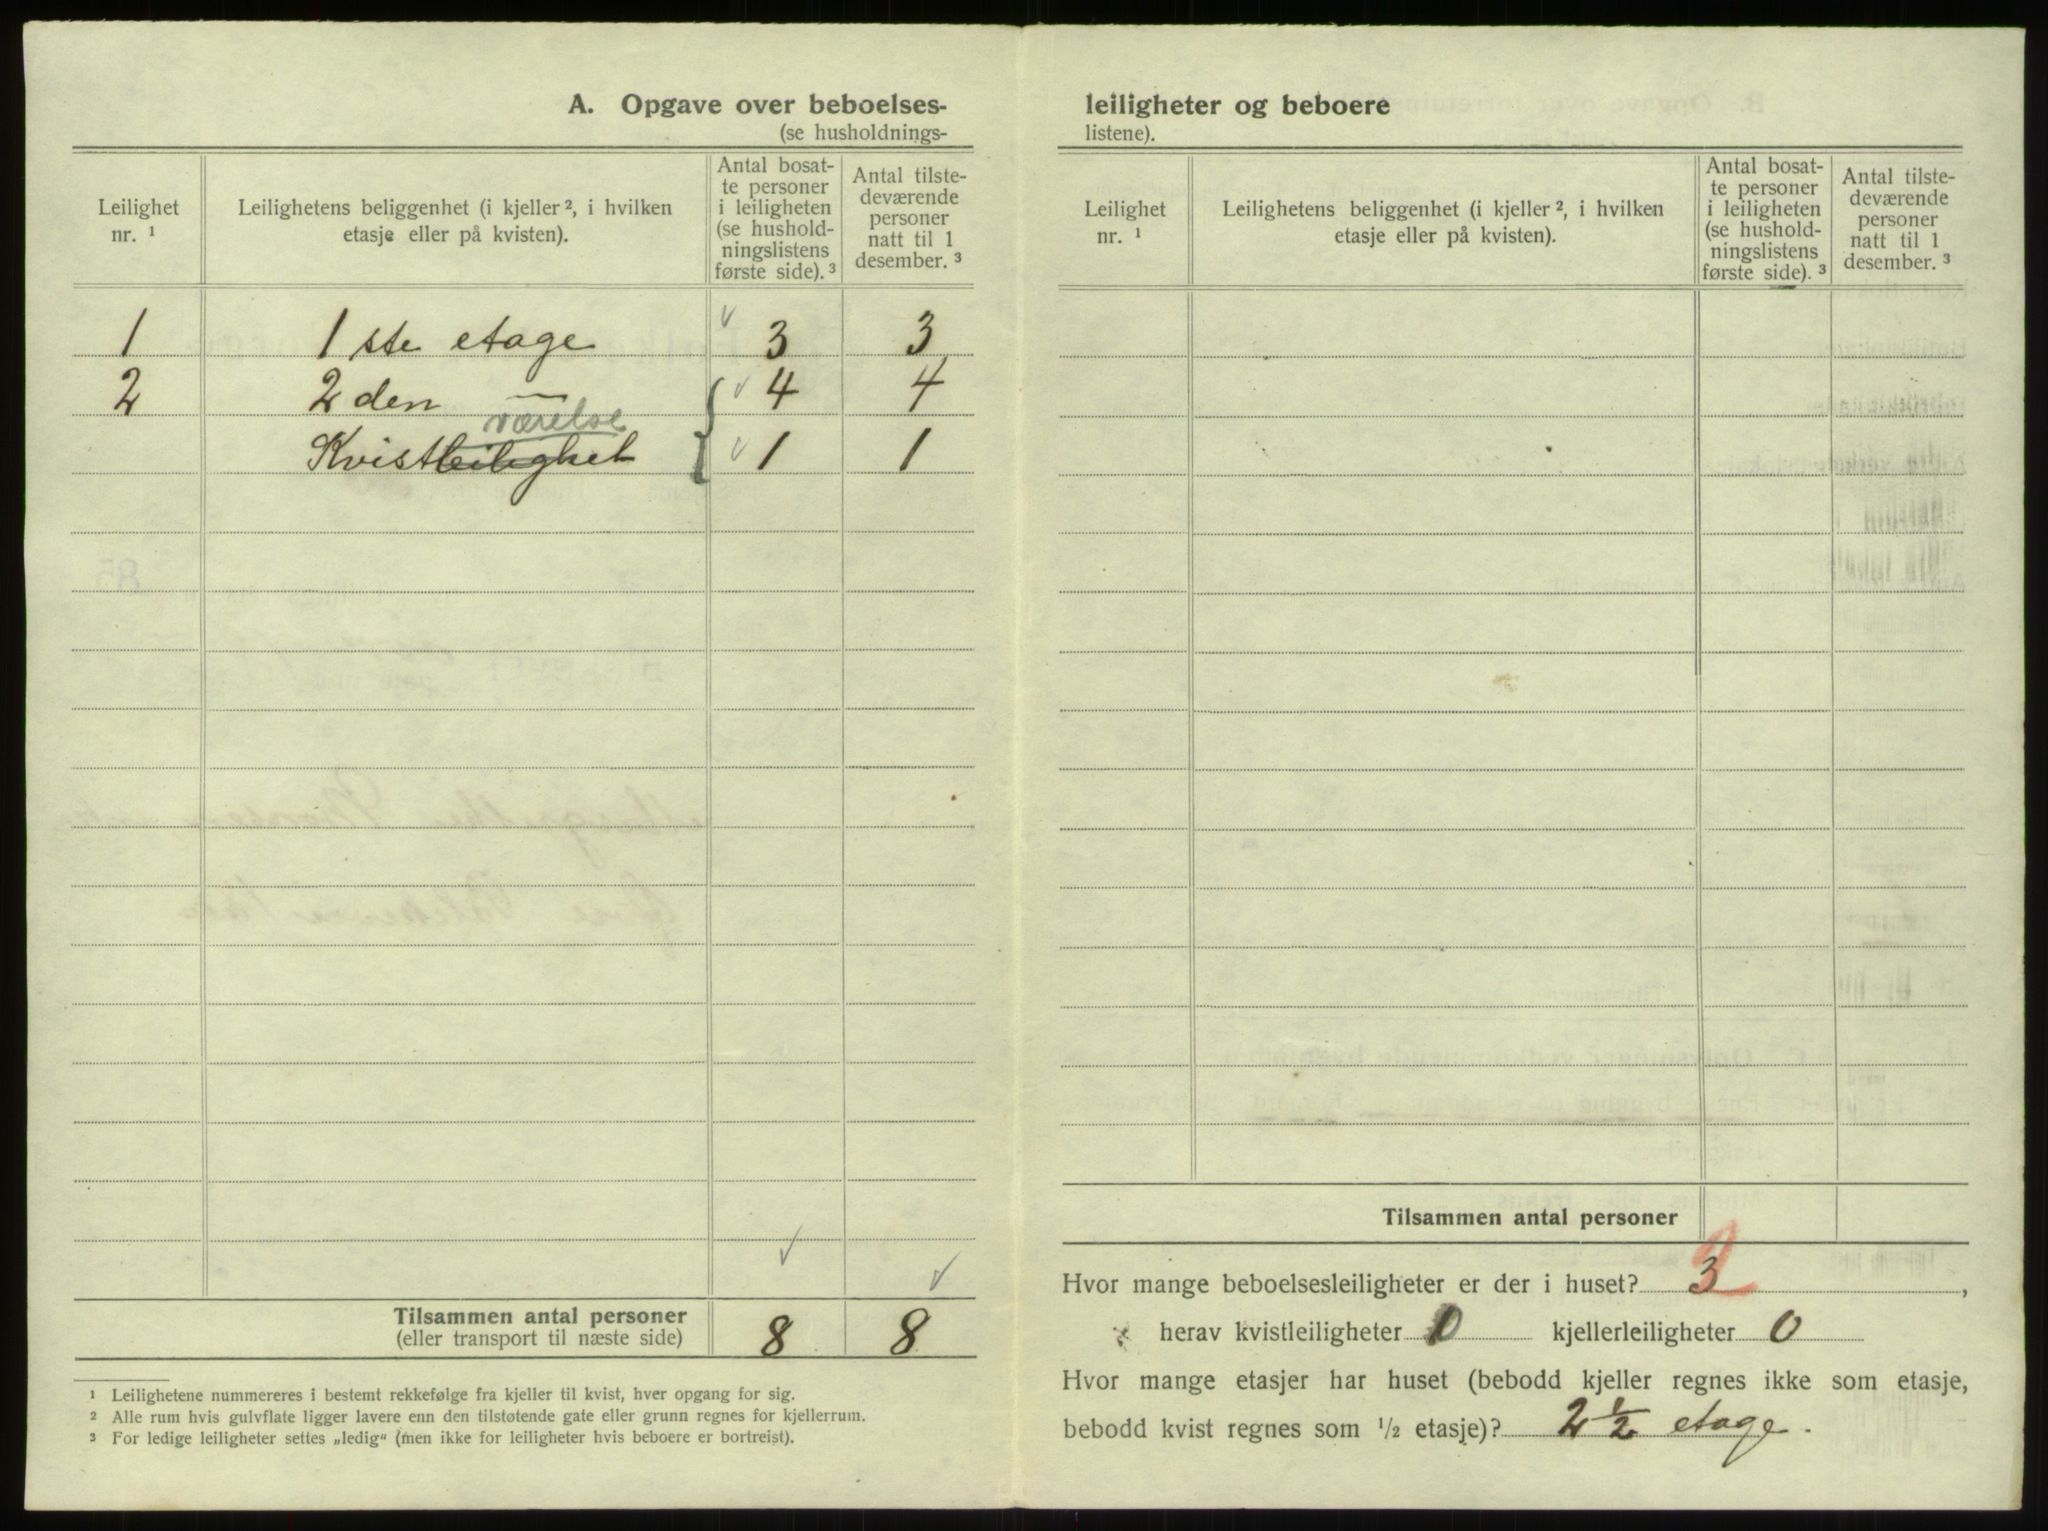 A. Opgave over beboelses-
(se husholdnings-
Leilighet
nr. ¹
Leilighetens beliggenhet (i kjeller ², i hvilken
etasje eller på kvisten).
Antal bosat-
te personer
i leiligheten
(se hushold-
ningslistens
første side). ³
Antal tilste-
deværende
personer
natt til 1
desember. ³
1 1 ste etage 3 3
2 2 den — 4 4
værelse
Kvistleilighet 1 1
Tilsammen antal personer
(eller transport til næste side) 8 8
¹ Leilighetene nummereres i bestemt rekkefølge fra kjeller til kvist, hver opgang for sig.
² Alle rum hvis gulvflate ligger lavere enn den tilstøtende gate eller grunn regnes for kjellerrum.
³ For ledige leiligheter settes „ledig“ (men ikke for leiligheter hvis beboere er bortreist).
leiligheter og beboere
listene).
Leilighet
nr. ¹
Leilighetens beliggenhet (i kjeller ², i hvilken
etasje eller på kvisten).
Antal bosat-
te personer
i leiligheten
(se hushold-
ningslistens
første side). ³
Antal tilste-
deværende
personer
natt til 1
desember. ³
Tilsammen antal personer
Hvor mange beboelsesleiligheter er der i huset? 3 2,
herav kvistleiligheter 0 kjellerleiligheter 0
Hvor mange etasjer har huset (bebodd kjeller regnes ikke som etasje,
bebodd kvist regnes som ½ etasje)? 2½ etage.